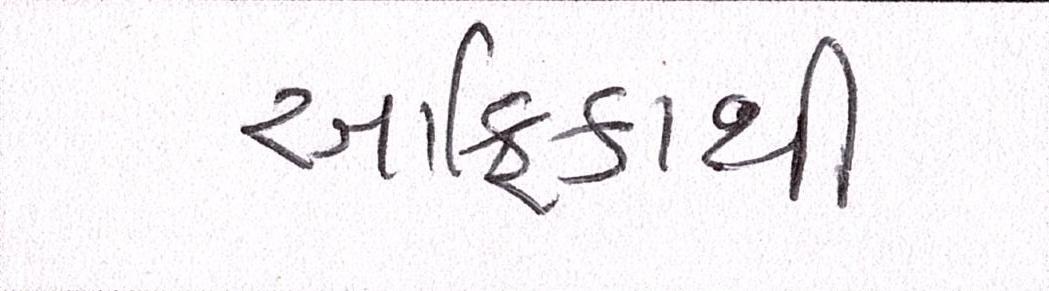 આફ્રિકાથી